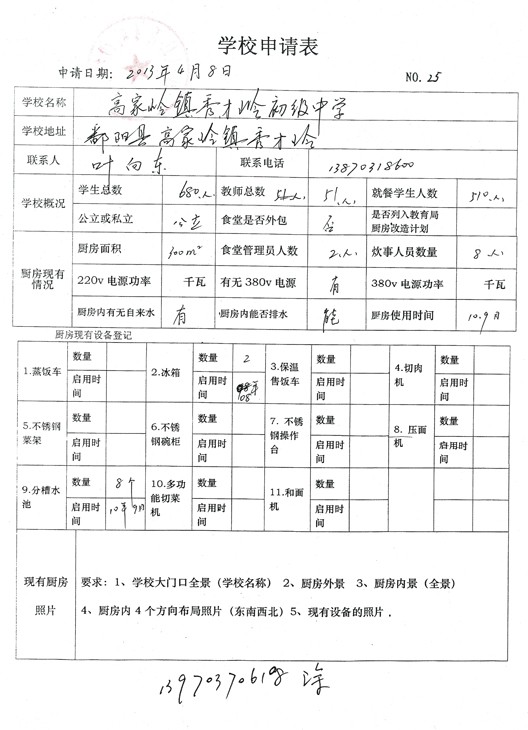 学校申请表
申请日期：2013年4月8日 NO.25
学校名称 高家岭镇秀才岭初级中学
学校地址 鄱阳县高家岭镇秀才岭
联系人 叶向东 联系电话 13870318600
学校概况 学生总数 680人 教师总数 51人 就餐学生人数 510人
公立或私立 公立 食堂是否外包 否 是否列入教育局厨房改造计划
厨房现有情况 厨房面积 300m² 食堂管理员人数 2人 炊事人员数量 8人
220v电源功率 千瓦 有无380v电源 有 380v电源功率 千瓦
厨房内有无自来水 有 厨房内能否排水 能 厨房使用时间 10.9月
厨房现有设备登记
1.蒸饭车 数量 启用时间 2.冰箱 数量 2 启用时间 08年 3.保温售饭车 数量 启用时间 4.切肉机 数量 启用时间
5.不锈钢菜架 数量 启用时间 6.不锈钢碗柜 数量 启用时间 7. 不锈钢操作台 数量 启用时间 8. 压面机 数量 启用时间
9.分槽水池 数量 8个 启用时间 10年9月 10.多功能切菜机 数量 启用时间 11.和面机 数量 启用时间
现有厨房照片 要求：1、学校大门口全景（学校名称） 2、厨房外景 3、厨房内景（全景）
4、厨房内4个方向布局照片（东南西北）5、现有设备的照片．
13970370618 涂